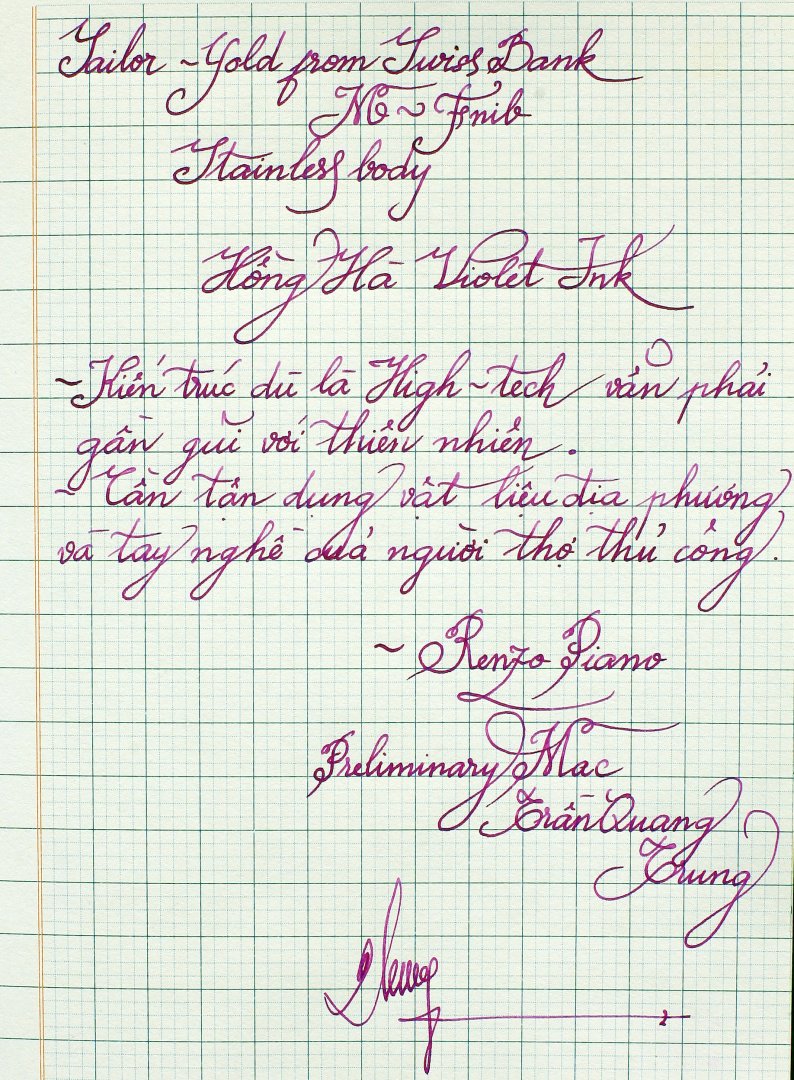 Sailor ~ Gold from Swiss Bank
nib
Stainless body
Hồng Hà Violet Ink
~ Kiến trúc dù là High~tech vẫn phải
gần gũi với thiên nhiên.
~ Cần tận dụng vật liệu địa phương
và tay nghề của người thợ thủ công.
~ Renzo Piano
Preliminary Mac
Trần Quang
Trung